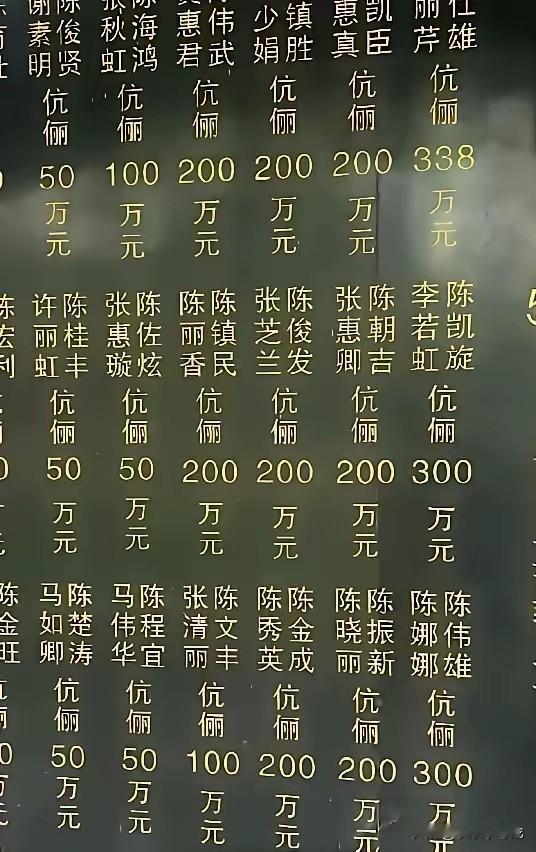 仕雄
丽芹
伉俪
338
万元
凯臣
惠真
伉俪
200
万元
镇胜
少娟
伉俪
200
万元
伟武
惠君
伉俪
200
万元
陈海鸿
张秋虹
伉俪
100
万元
陈俊贤
谢素明
伉俪
50
万元
陈凯旋
李若虹
伉俪
300
万元
陈朝吉
张惠卿
伉俪
200
万元
陈俊发
张芝兰
伉俪
200
万元
陈镇民
陈丽香
伉俪
200
万元
陈佐炫
张惠璇
伉俪
50
万元
陈桂丰
许丽虹
伉俪
50
万元
陈宏利
陈伟雄
陈娜娜
伉俪
300
万元
陈振新
陈晓丽
伉俪
200
万元
陈金成
陈秀英
伉俪
200
万元
陈文丰
张清丽
伉俪
100
万元
陈程宜
马伟华
伉俪
50
万元
陈楚涛
马如卿
伉俪
50
万元
陈金旺